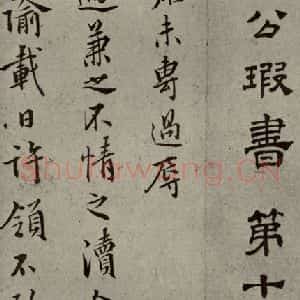 公瑕書第十
未專過辱
兼之不情之瀆
喻載旧許領不
Shufawang.CN